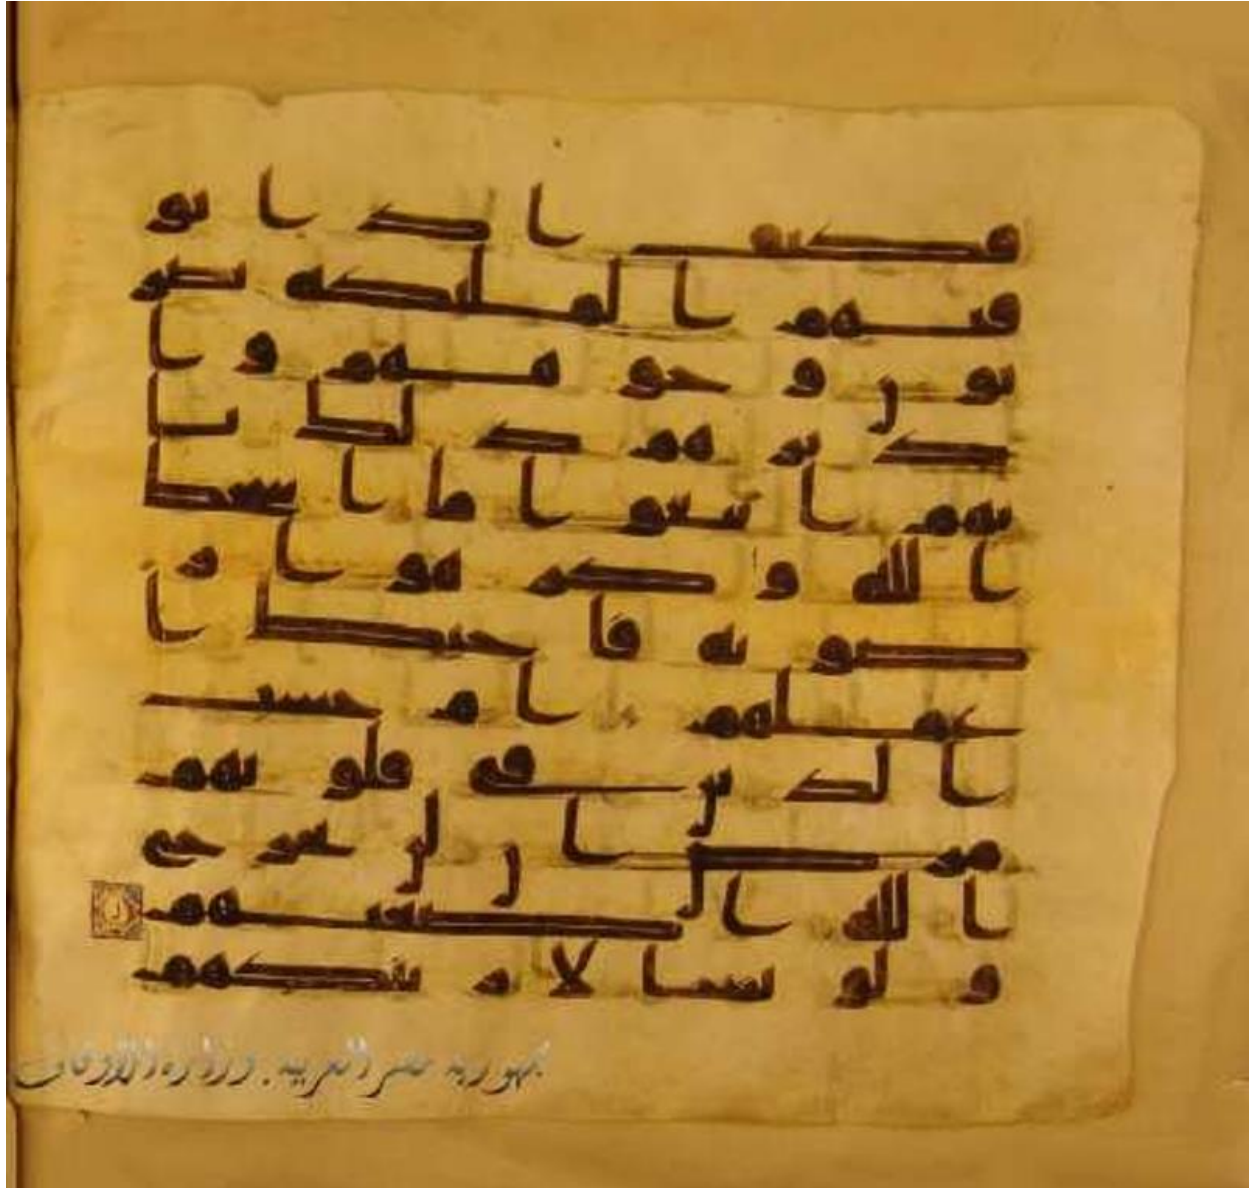 فكيف اذا تو
فتهم الملئكة يضر
بون وجوههم وا
دبرهم ذلك با
نهم اتبعوا ما اسخط
الله وكرهوا ر
ضونه فاحبط ا
عملهم ام حسب
الذين في قلوبهم
مرض ان لن يخرج
الله اضغنهم
ولو نشا لارينكهم
جمهورية مصر العربية . وزارة الأوقاف